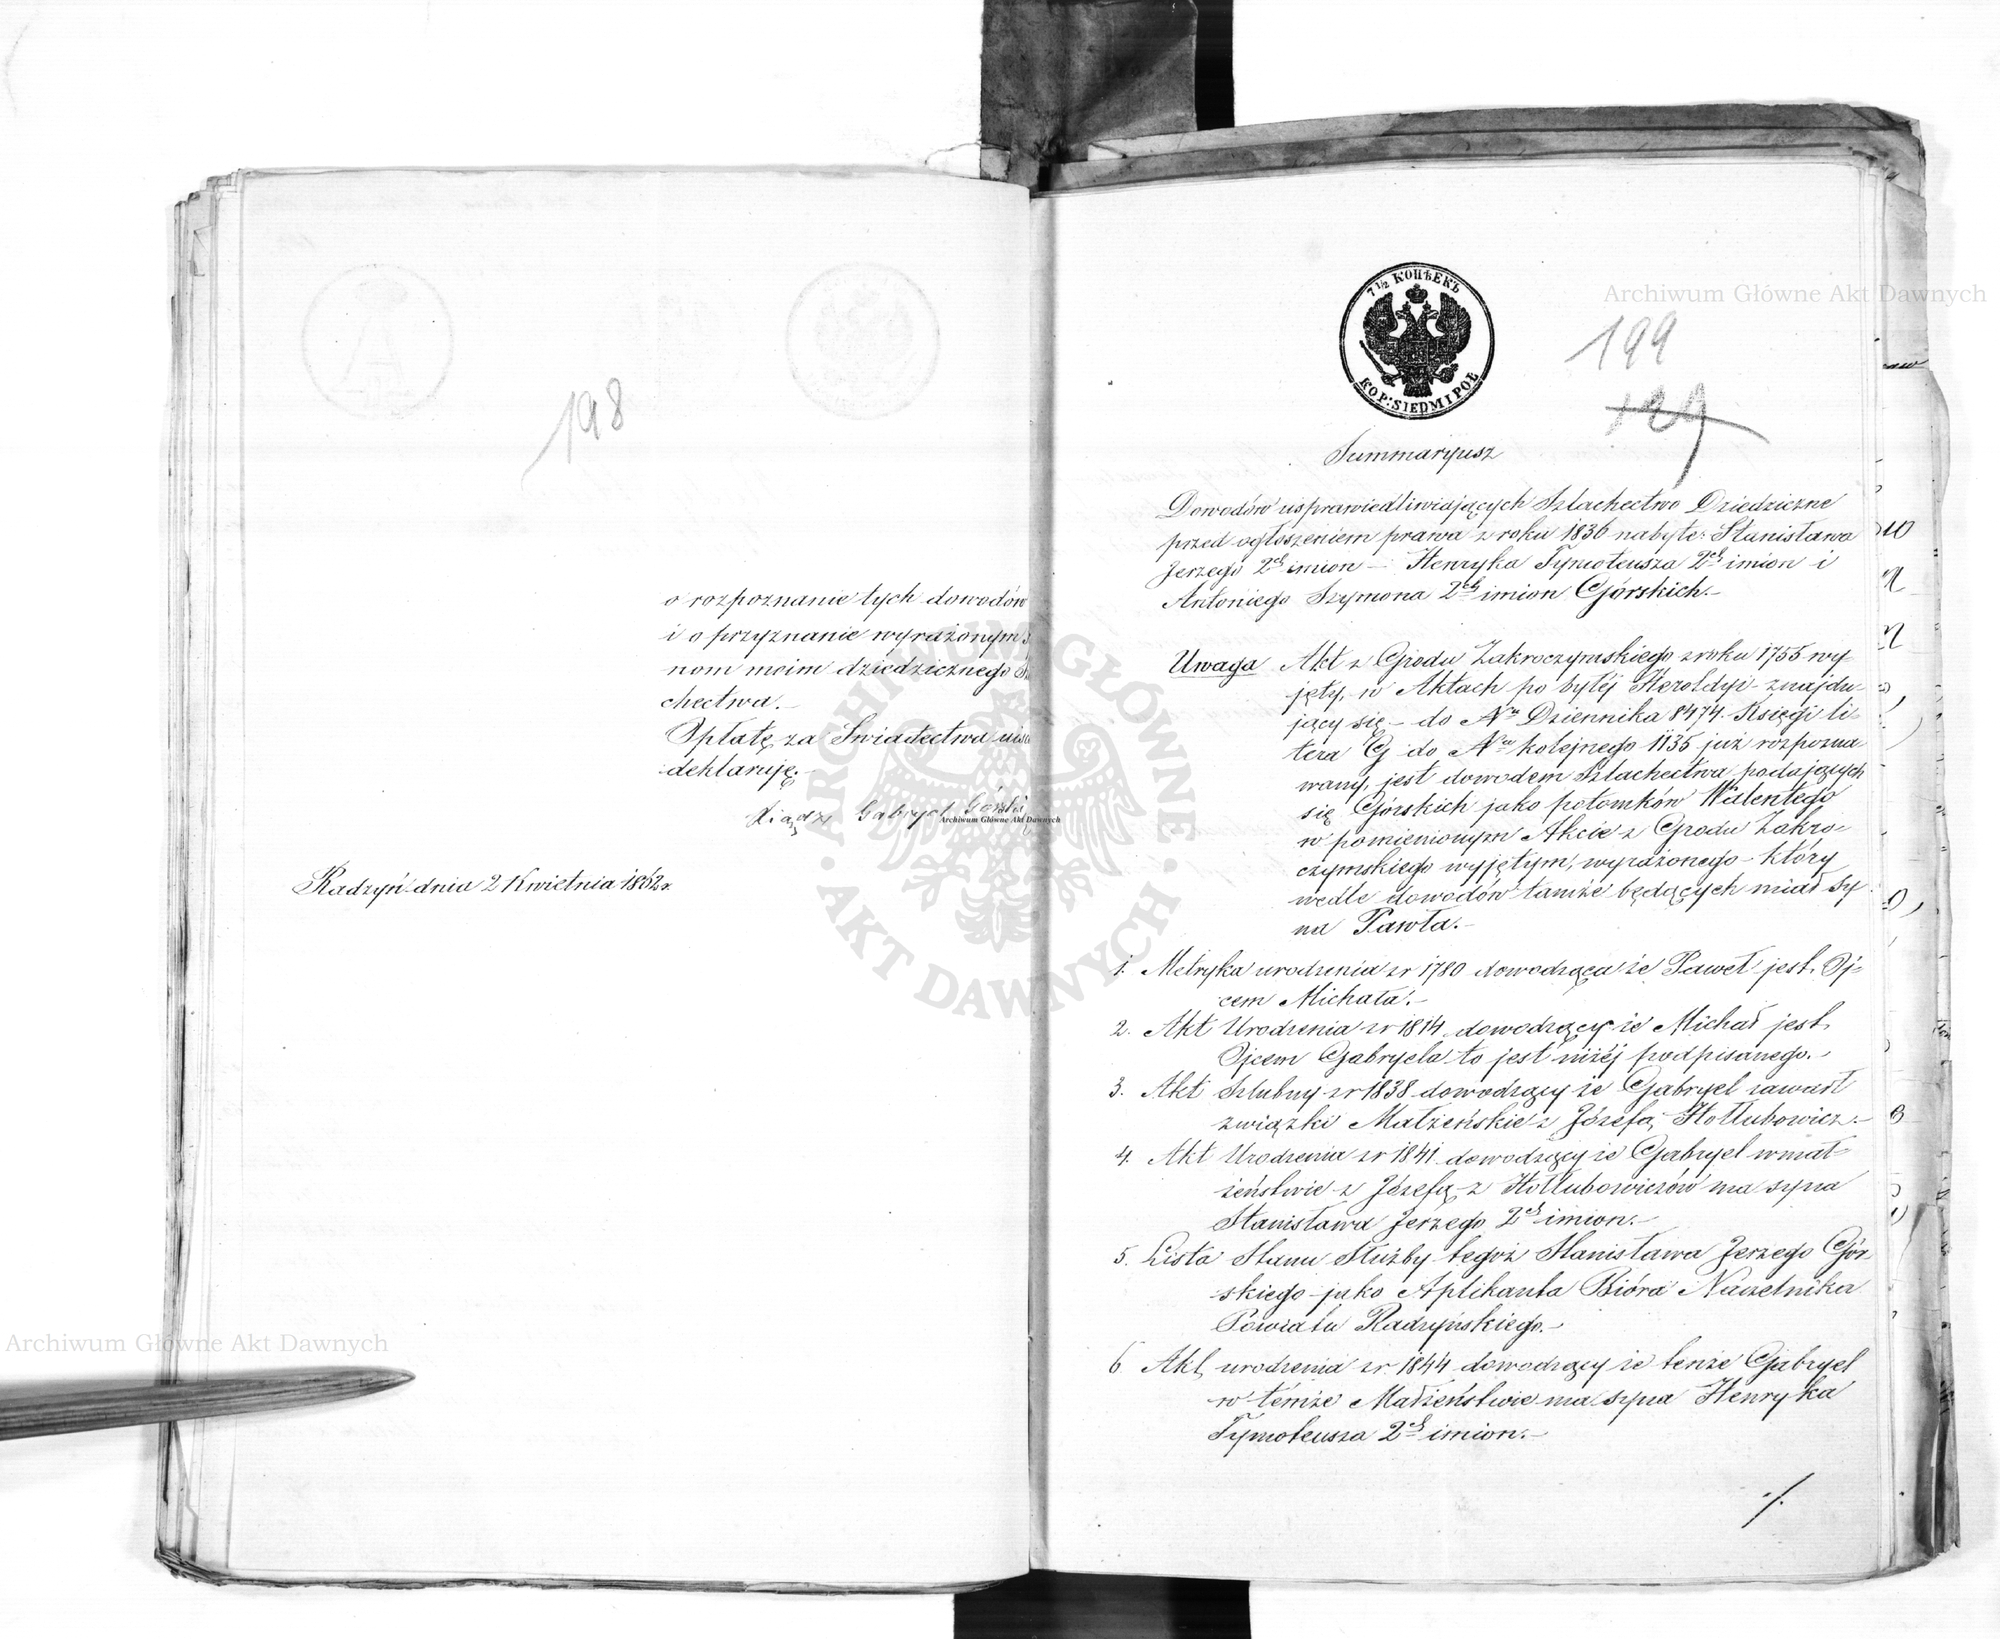 198
o rozpoznanie tych dowodów
i o przyznanie wyrażonym
nom moim dziedzicznego
chectwa.
Opłatę za Swiadectwa
deklaruję.
Xiądz Gabryel Górski
Radzyń dnia 2 Kwietnia 1862 r.
Archiwum Główne Akt Dawnych
7½ КОПѢЕКЪ
KOP: SIEDM I POŁ
199
129
Summaryusz
Dowodów usprawiedliwiających Szlachectwo Dziedziczne
przed ogłoszeniem prawa z roku 1836 nabyte: Stanisława
Jerzego 2ch imion – Henryka Tymoteusza 2ch imion i
Antoniego Szymona 2ch imion Górskich.–
Uwaga Akt z Grodu Zakroczymskiego z roku 1755 wy-
jęty, w Aktach po byłéj Heroldyi – znajdu-
jący się – do Nru Dziennika 8474. Księgi li-
tera G do Nru kolejnego 1135 już rozpozna-
wany, jest dowodem Szlachectwa podających
się Górskich jako potomków Walentego
w pomienionym Akcie z Grodu Zakro-
czymskiego wyjętym, wyrażonego – który
wedle dowodów tamże będących miał sy
na Pawła.–
1. Metryka urodzenia z r 1780 dowodząca że Paweł jest Oj-
cem Michała.–
2. Akt Urodzenia z r 1814 dowodzący że Michał jest
Ojcem Gabryela to jest niżéj podpisanego.–
3. Akt Szlubny z r 1838 dowodzący że Gabryel zawarł
związki Małżeńskie z Józefą Hołłubowicz.–
4. Akt Urodzenia z r 1841 dowodzący że Gabryel w mał-
żeństwie z Józefą z Hołłubowiczów ma syna
Stanisława Jerzego 2ch imion.–
5. Lista Stanu Służby tegoż Stanisława Jerzego Gór-
skiego jako Aplikanta Bióra Naczelnika
Powiatu Radzyńskiego.–
6 Akt urodzenia z r 1844 dowodzący że tenże Gabryel
w témże Małżeństwie ma syna Henryka
Tymoteusza 2ch imion.–
./.
ARCHIWUM GŁÓWNE
AKT DAWNYCH
Archiwum Główne Akt Dawnych
Archiwum Główne Akt Dawnych